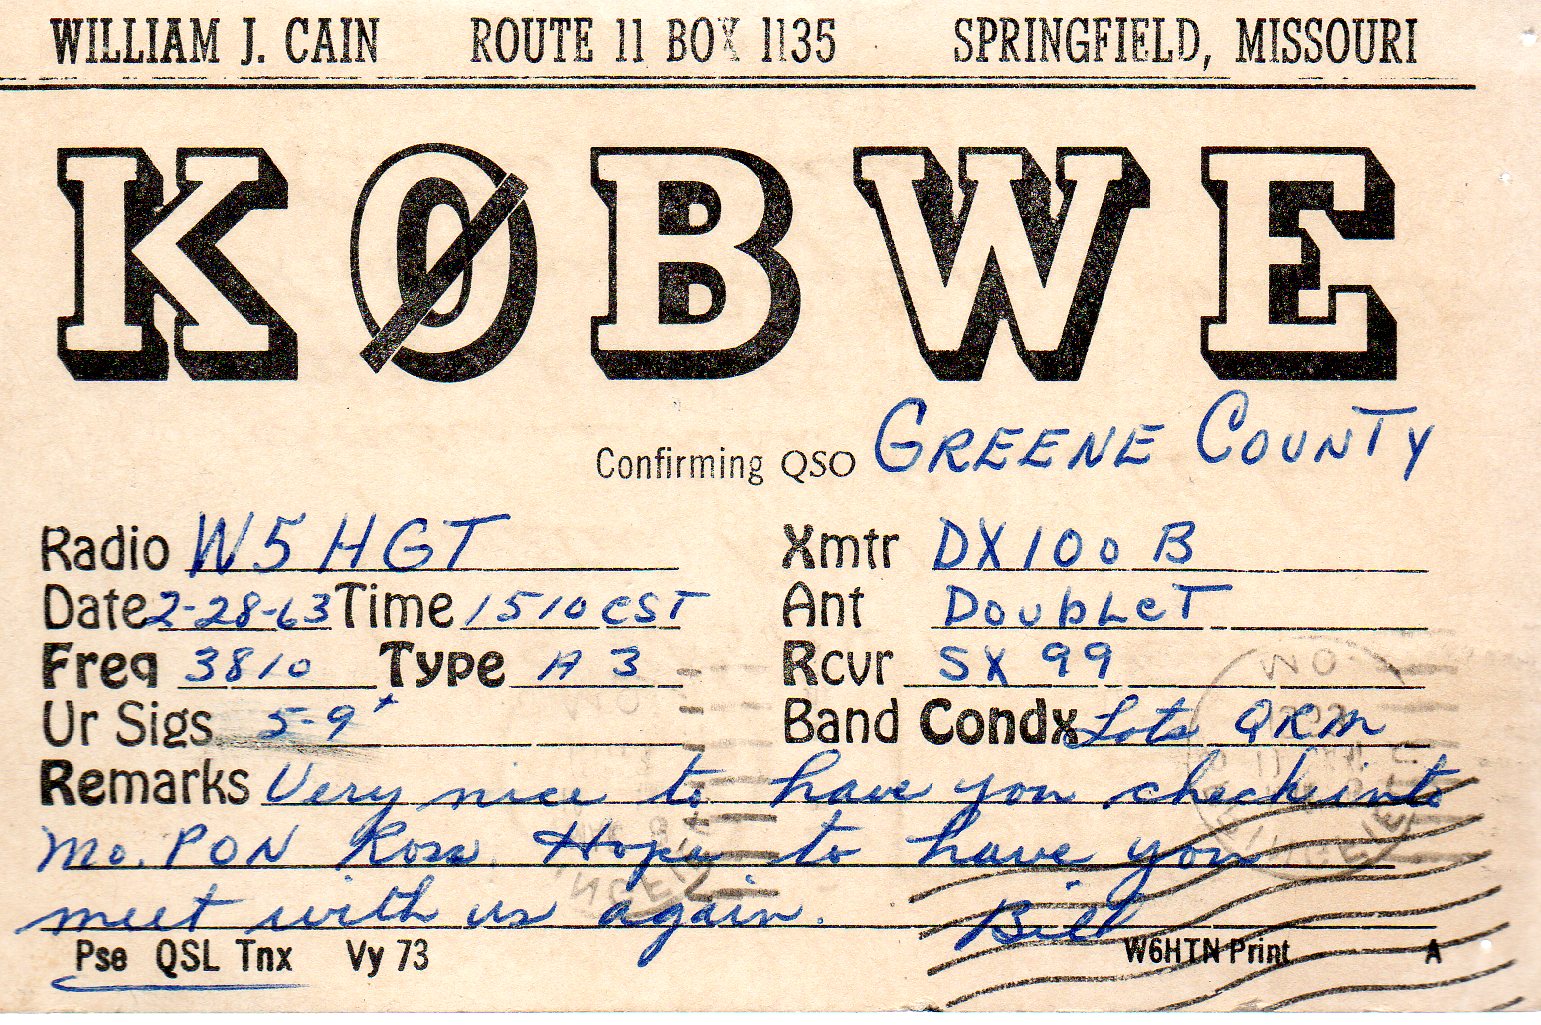 WILLIAM J. CAIN ROUTE 11 BOX 1135 SPRINGFIELD, MISSOURI
KØBWE
Confirming QSO GREENE COUNTY
Radio W5HGT Xmtr DX100B
Date 2-28-63 Time 1510 CST Ant DOUBLET
Freq 3810 Type A3 Rcvr SX 99
Ur Sigs 5-9+ Band Condx Lots QRM
Remarks Very nice to have you check into
Mo. PON Ross. Hope to have you
meet with us again. Bill
Pse QSL Tnx Vy 73 W6HTN Print A